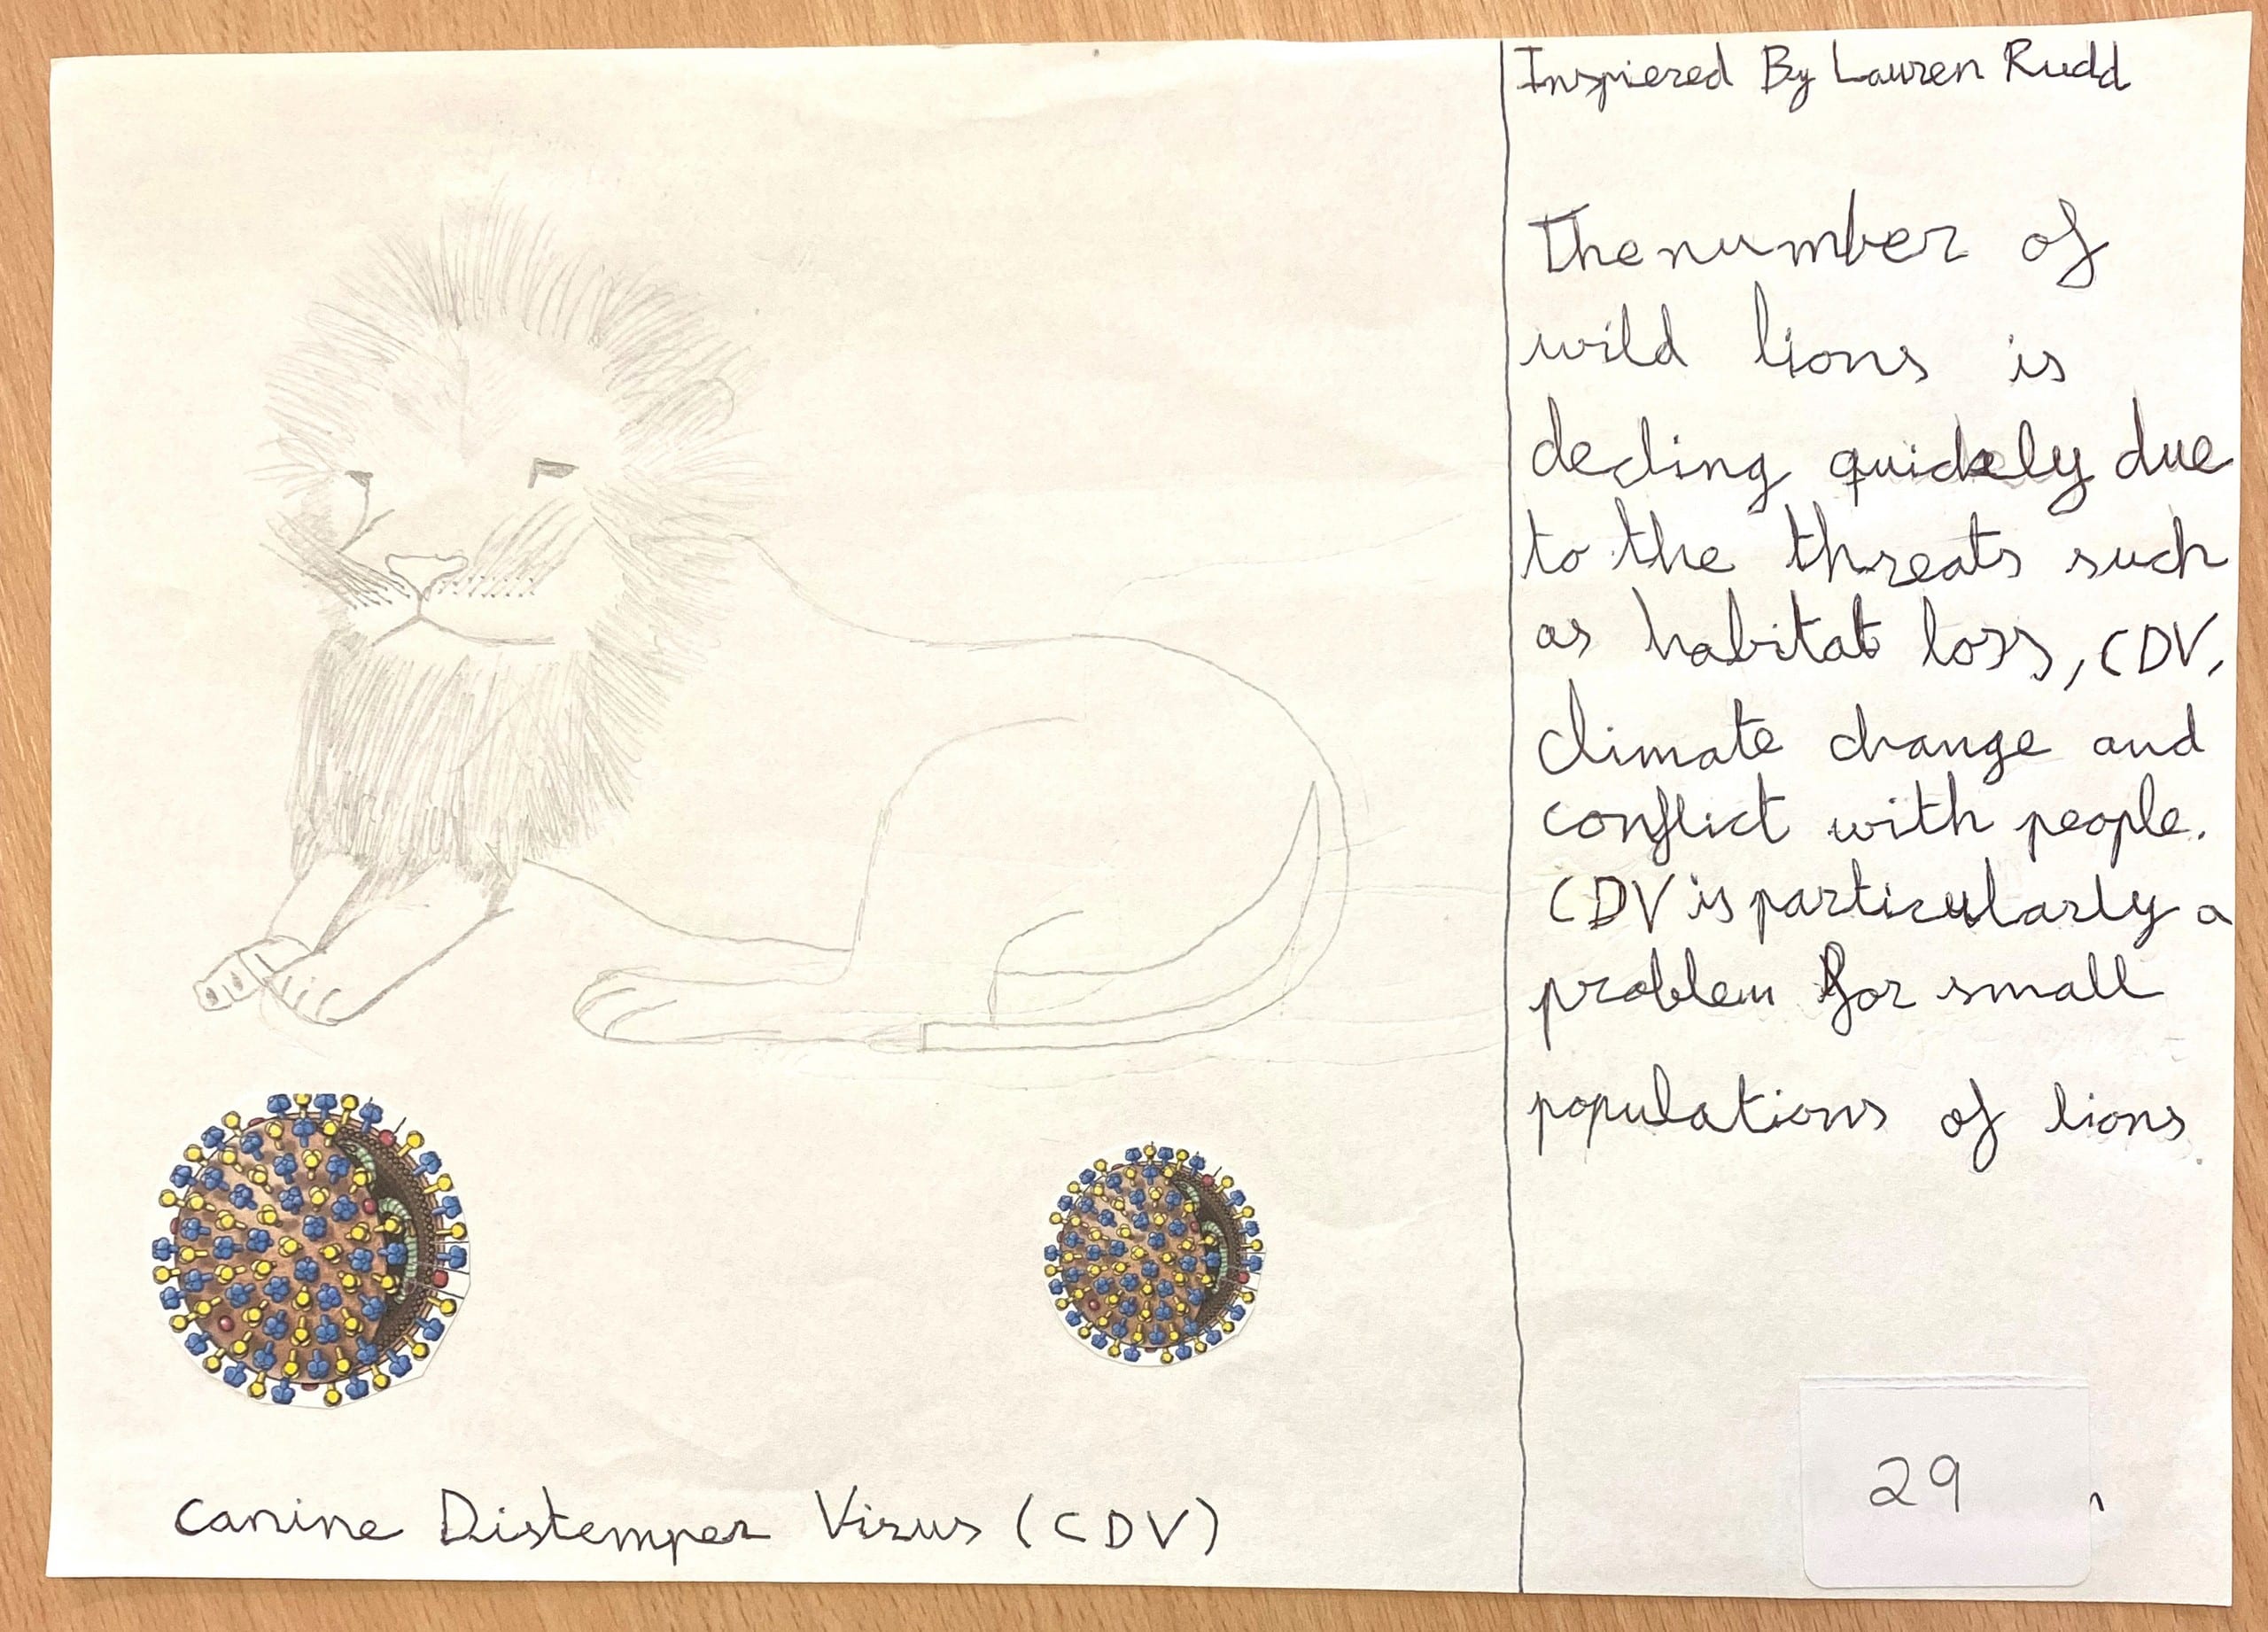 Inspiered By Lauren Rudd
The number of
wild lions is
decling quickely due
to the threats such
as habitat loss, CDV,
climate change and
conflict with people.
CDV is particularly a
problem for small
populations of lions.
29
Canine Distemper Virus (CDV)